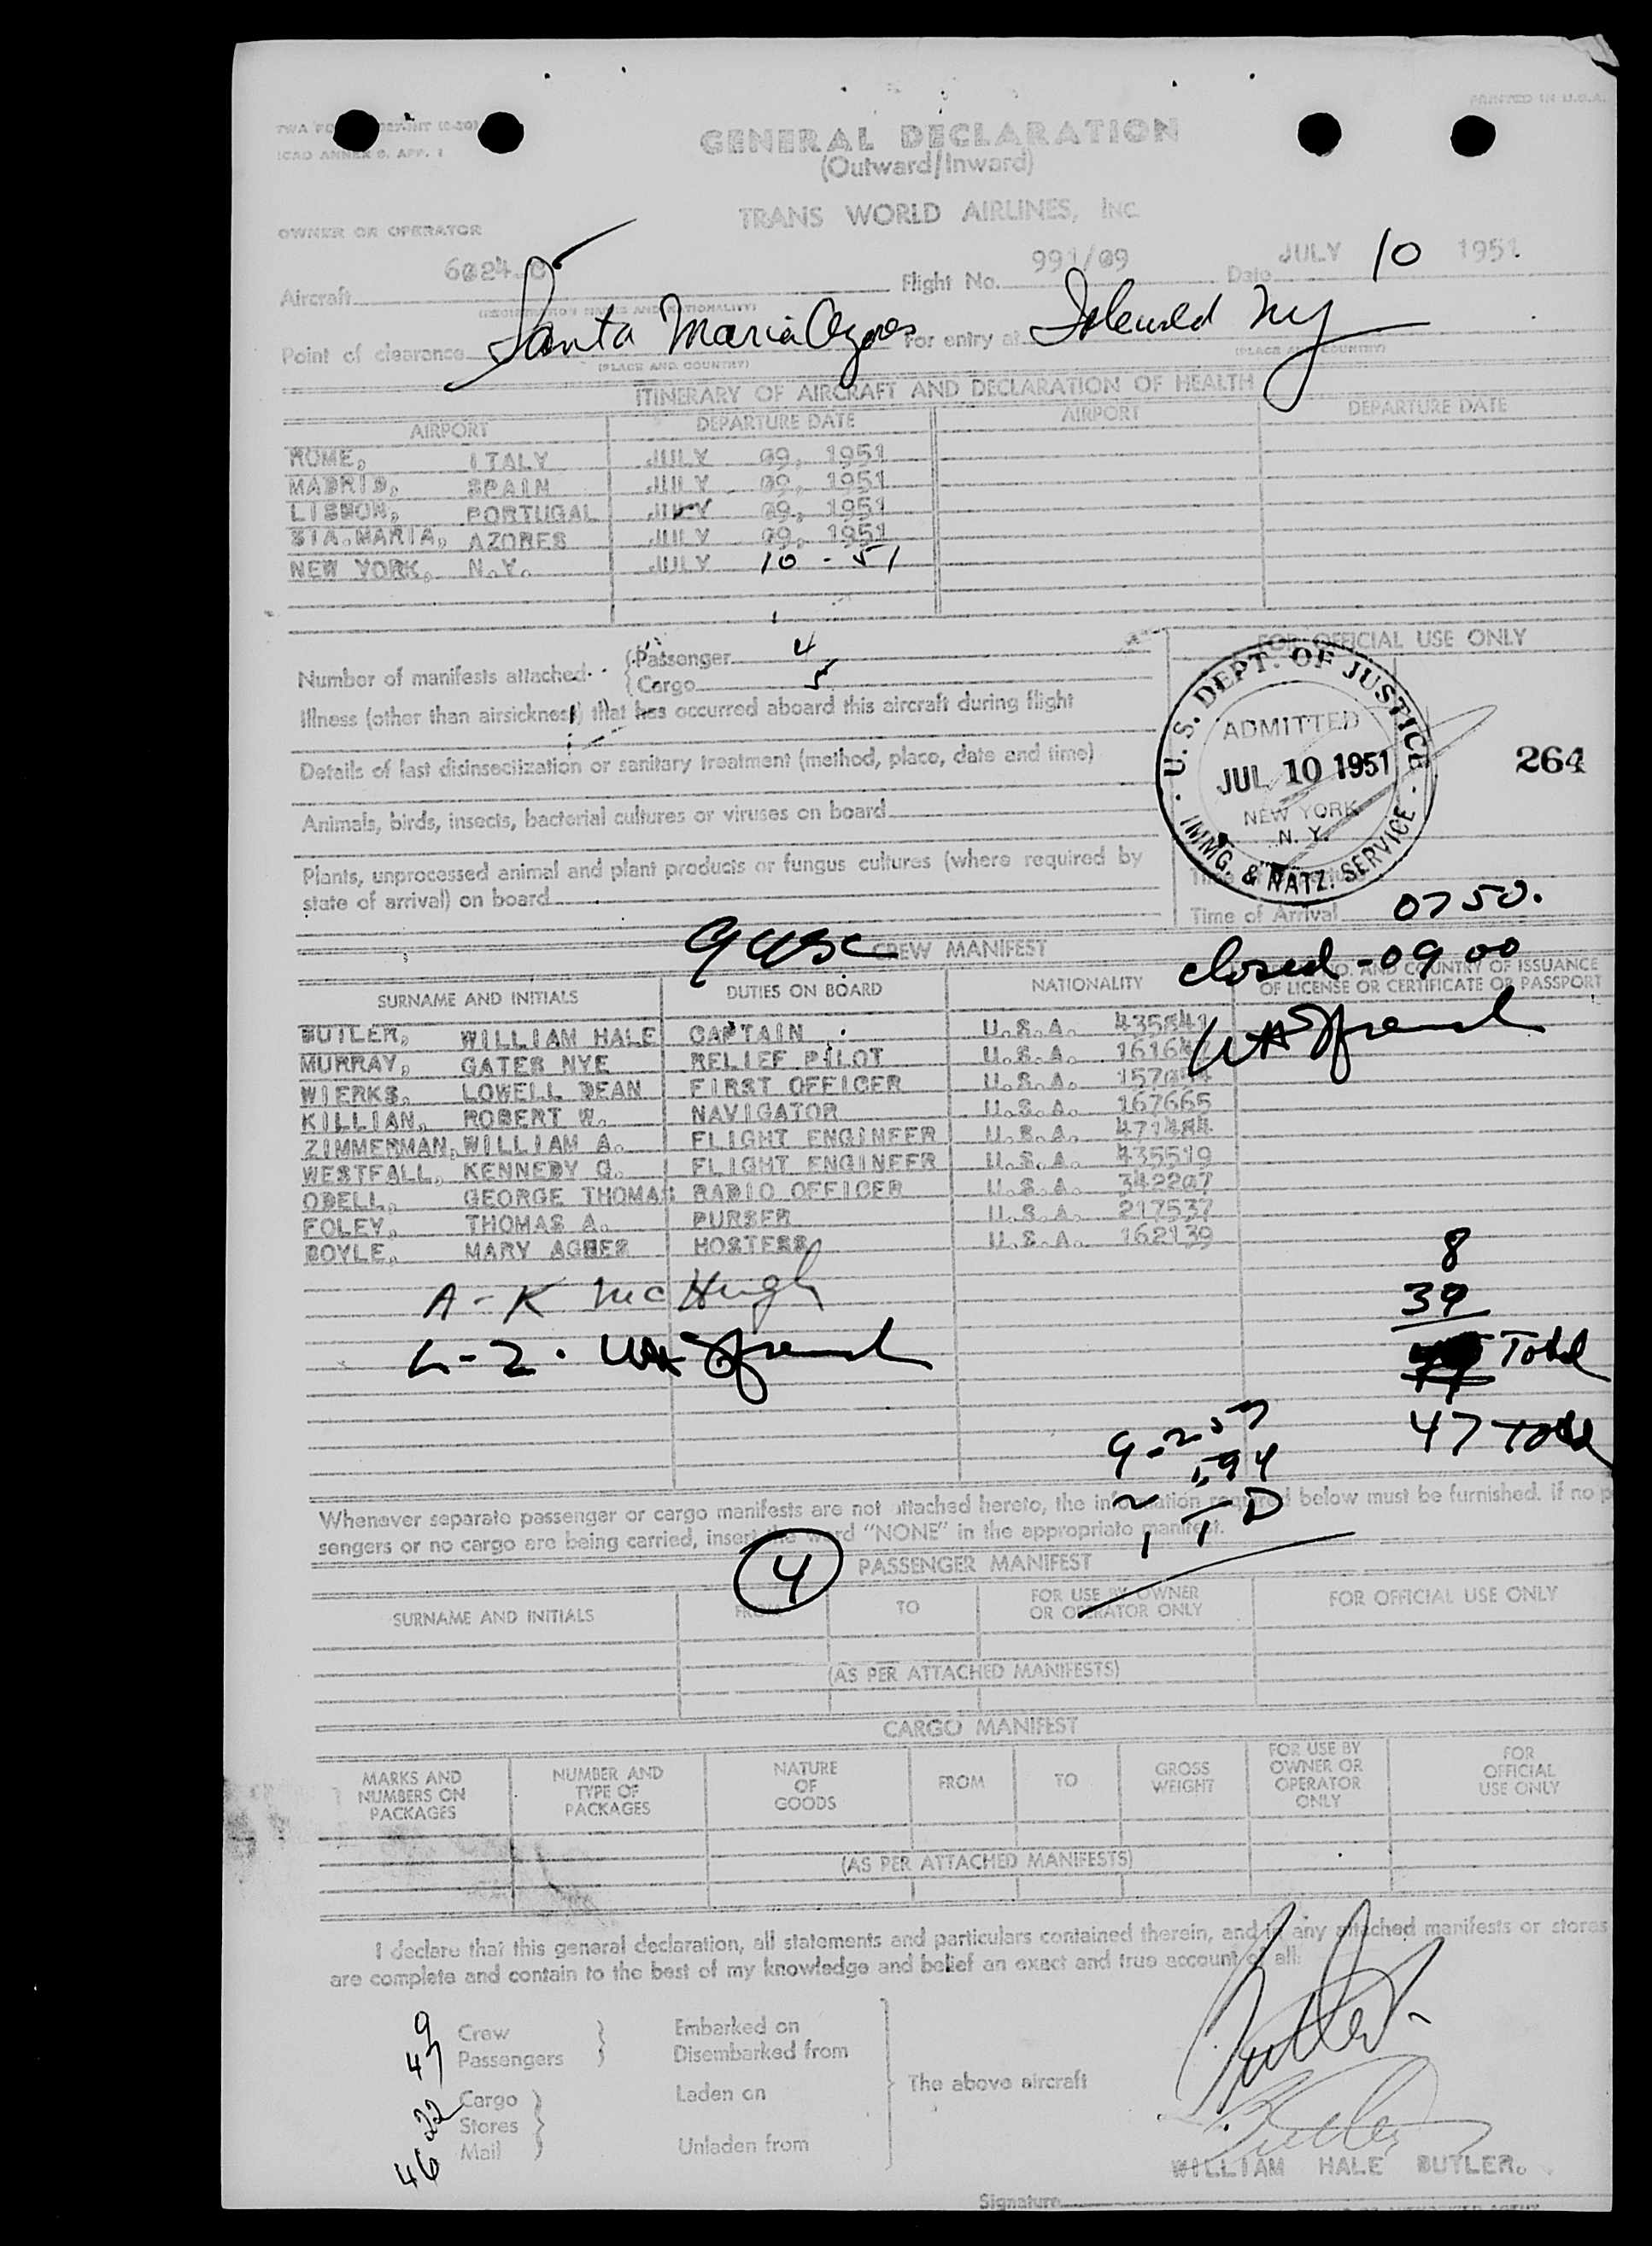 PRINTED IN U.S.A.
ICAO ANNEX 9, APP. 1
GENERAL DECLARATION
(Outward/Inward)
TRANS WORLD AIRLINES, INC.
OWNER OR OPERATOR
Aircraft 6024 C Flight No. 991/09 Date JULY 10 1951
(REGISTRATION MARKS AND NATIONALITY)
Point of clearance Santa Maria Azores For entry at Idlewild NY
(PLACE AND COUNTRY) (PLACE AND COUNTRY)
ITINERARY OF AIRCRAFT AND DECLARATION OF HEALTH
AIRPORT DEPARTURE DATE AIRPORT DEPARTURE DATE
ROME, ITALY JULY 09, 1951
MADRID, SPAIN JULY 09, 1951
LISBON, PORTUGAL JULY 09, 1951
STA.MARIA, AZORES JULY 09, 1951
NEW YORK, N.Y. JULY 10 - 51
FOR OFFICIAL USE ONLY
Number of manifests attached
Passenger 4
Cargo 5
Illness (other than airsickness) that has occurred aboard this aircraft during flight
Details of last disinsectization or sanitary treatment (method, place, date and time)
Animals, birds, insects, bacterial cultures or viruses on board
Plants, unprocessed animal and plant products or fungus cultures (where required by
state of arrival) on board
U.S. DEPT. OF JUSTICE
ADMITTED
JUL 10 1951
NEW YORK
N.Y.
IMMG. & NATZ. SERVICE
264
Time of Arrival 0750.
9 USC CREW MANIFEST
closed - 0900
SURNAME AND INITIALS DUTIES ON BOARD NATIONALITY NO. AND COUNTRY OF ISSUANCE
OF LICENSE OR CERTIFICATE OR PASSPORT
BUTLER, WILLIAM HALE CAPTAIN U.S.A. 435841
MURRAY, GATES NYE RELIEF PILOT U.S.A.
WIERKS, LOWELL DEAN FIRST OFFICER U.S.A.
KILLIAN, ROBERT W. NAVIGATOR U.S.A. 167665
ZIMMERMAN, WILLIAM A. FLIGHT ENGINEER U.S.A. 471484
WESTFALL, KENNEDY G. FLIGHT ENGINEER U.S.A. 435519
ODELL, GEORGE THOMAS RADIO OFFICER U.S.A. 342207
FOLEY, THOMAS A. PURSER U.S.A. 217537
BOYLE, MARY AGNES HOSTESS U.S.A. 162139
8
A - K McHugh
39
L - Z.
Total
47 Total
Whenever separate passenger or cargo manifests are not attached hereto, the information required below must be furnished. If no
sengers or no cargo are being carried, insert the word "NONE" in the appropriate manifest.
4 PASSENGER MANIFEST
SURNAME AND INITIALS FROM TO FOR USE BY OWNER OR OPERATOR ONLY FOR OFFICIAL USE ONLY
(AS PER ATTACHED MANIFESTS)
CARGO MANIFEST
MARKS AND NUMBERS ON PACKAGES NUMBER AND TYPE OF PACKAGES NATURE OF GOODS FROM TO GROSS WEIGHT FOR USE BY OWNER OR OPERATOR ONLY FOR OFFICIAL USE ONLY
(AS PER ATTACHED MANIFESTS)
I declare that this general declaration, all statements and particulars contained therein, and in any attached manifests or stores
are complete and contain to the best of my knowledge and belief an exact and true account of all:
9 Crew Embarked on
47 Passengers Disembarked from
The above aircraft
Cargo Laden on
22 Stores
46 Mail Unladen from
Butler
Butler
WILLIAM HALE BUTLER.
Signature